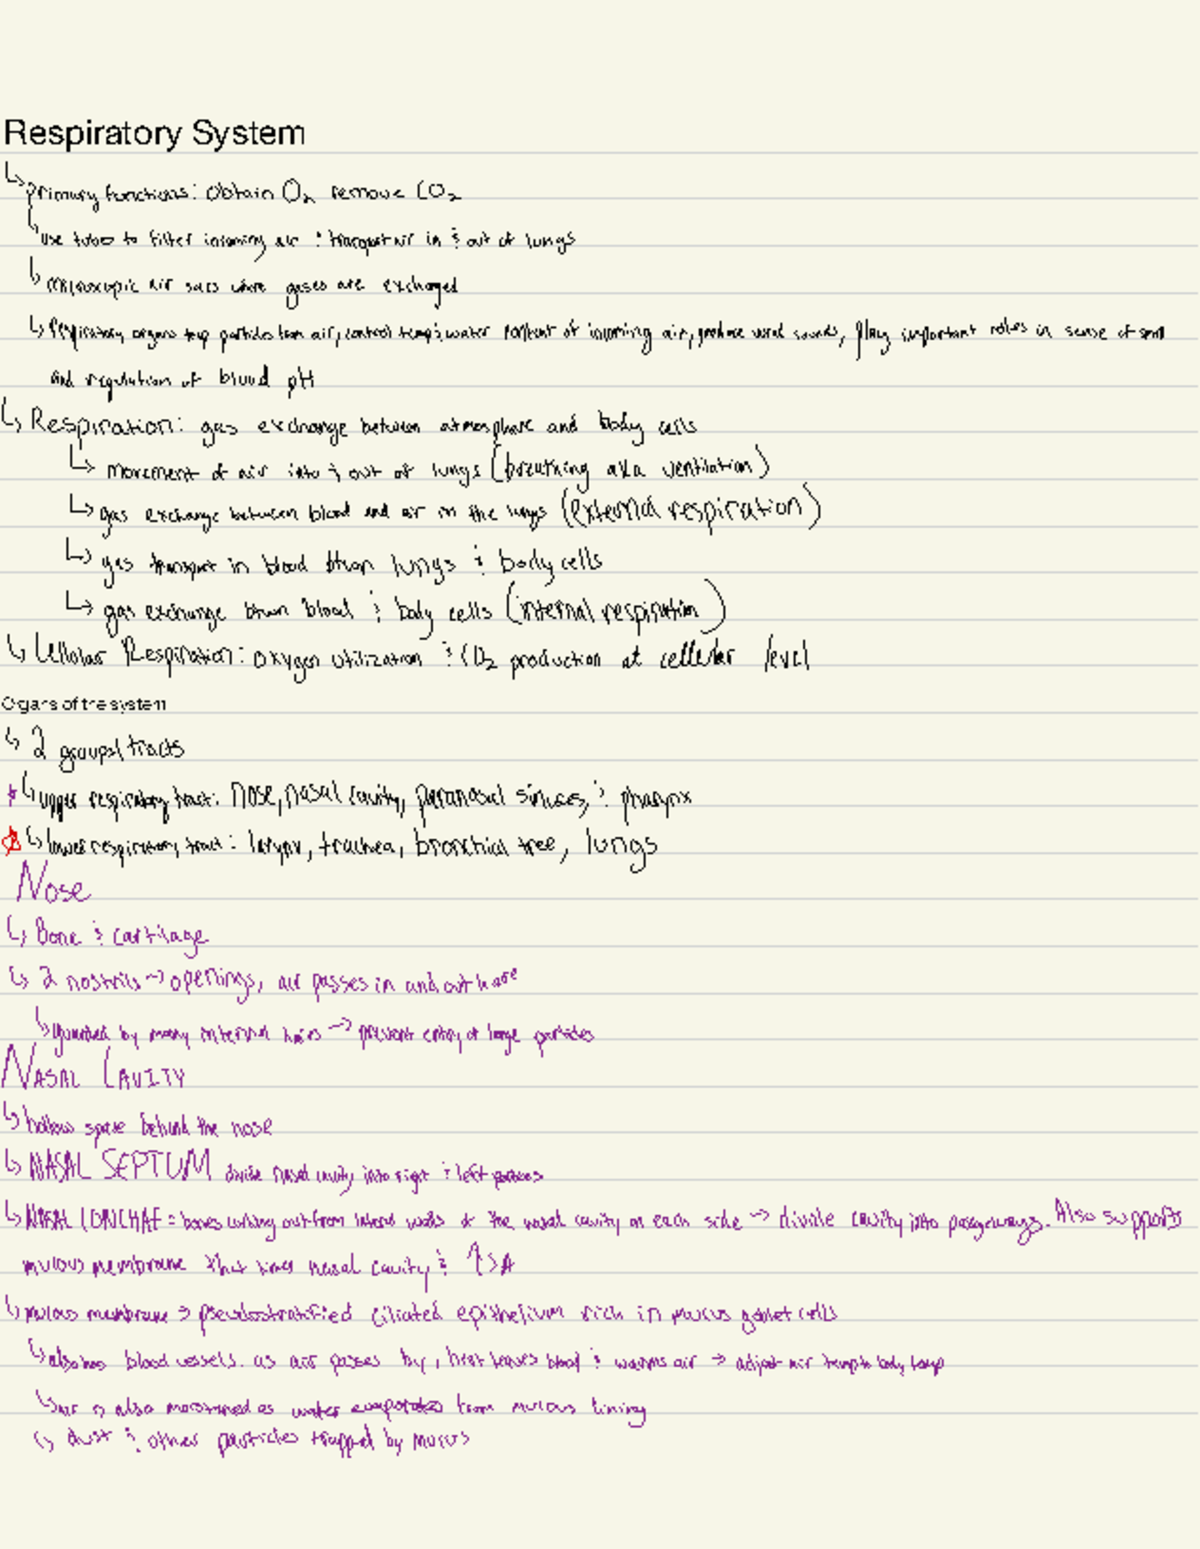 Respiratory System
↳ primary functions: obtain O₂ remove CO₂
↳ use tubes to filter incoming air & transport air in & out of lungs
↳ microscopic air sacs where gases are exchanged
↳ Respiratory organs trap particles from air, control temp & water content of incoming air, produce vocal sounds, play important roles in sense of smell
and regulation of blood pH
↳ Respiration: gas exchange between atmosphere and body cells
↳ movement of air into & out of lungs (breathing aka ventilation)
↳ gas exchange between blood and air in the lungs (external respiration)
↳ gas transport in blood btwn lungs & body cells
↳ gas exchange btwn blood & body cells (internal respiration)
↳ Cellular Respiration: oxygen utilization & CO₂ production at cellular level
Organs of the system
↳ 2 groups/tracts
↳ upper respiratory tract: Nose, nasal cavity, paranasal sinuses, & pharynx
↳ lower respiratory tract: larynx, trachea, bronchial tree, lungs
Nose
↳ Bone & cartilage
↳ 2 nostrils → openings, air passes in and out here
↳ guarded by many internal hairs → prevent entry of large particles
NASAL CAVITY
↳ hollow space behind the nose
↳ NASAL SEPTUM divide nasal cavity into right & left portions
↳ NASAL CONCHAE = bones curling out from lateral walls of the nasal cavity on each side → divide cavity into passageways. Also supports
mucous membrane that lines nasal cavity & ↑SA
↳ mucous membrane → pseudostratified ciliated epithelium rich in mucus goblet cells
↳ also has blood vessels. as air passes by, heat leaves blood & warms air → adjust air temp to body temp
↳ air is also moistened as water evaporates from mucous lining
↳ dust & other particles trapped by mucus